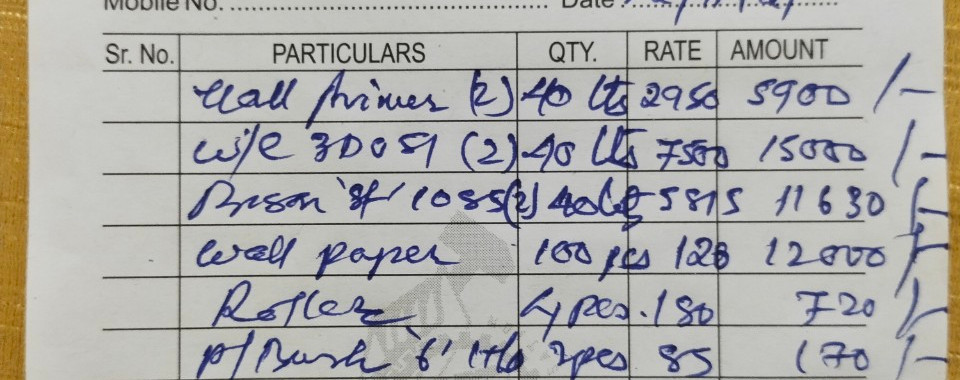 Mobile No. Date
Sr. No. PARTICULARS QTY. RATE AMOUNT
Wall Primer (2) 40 lts 2950 5900/-
W/C 3D051 (2) 40 lts 7500 15000/-
1085(2) 40 5815 11630/-
Wall paper 100 pcs 120 12000/-
Roller 4 pcs. 180 720/-
P/Bush 6" 2pcs 85 170/-